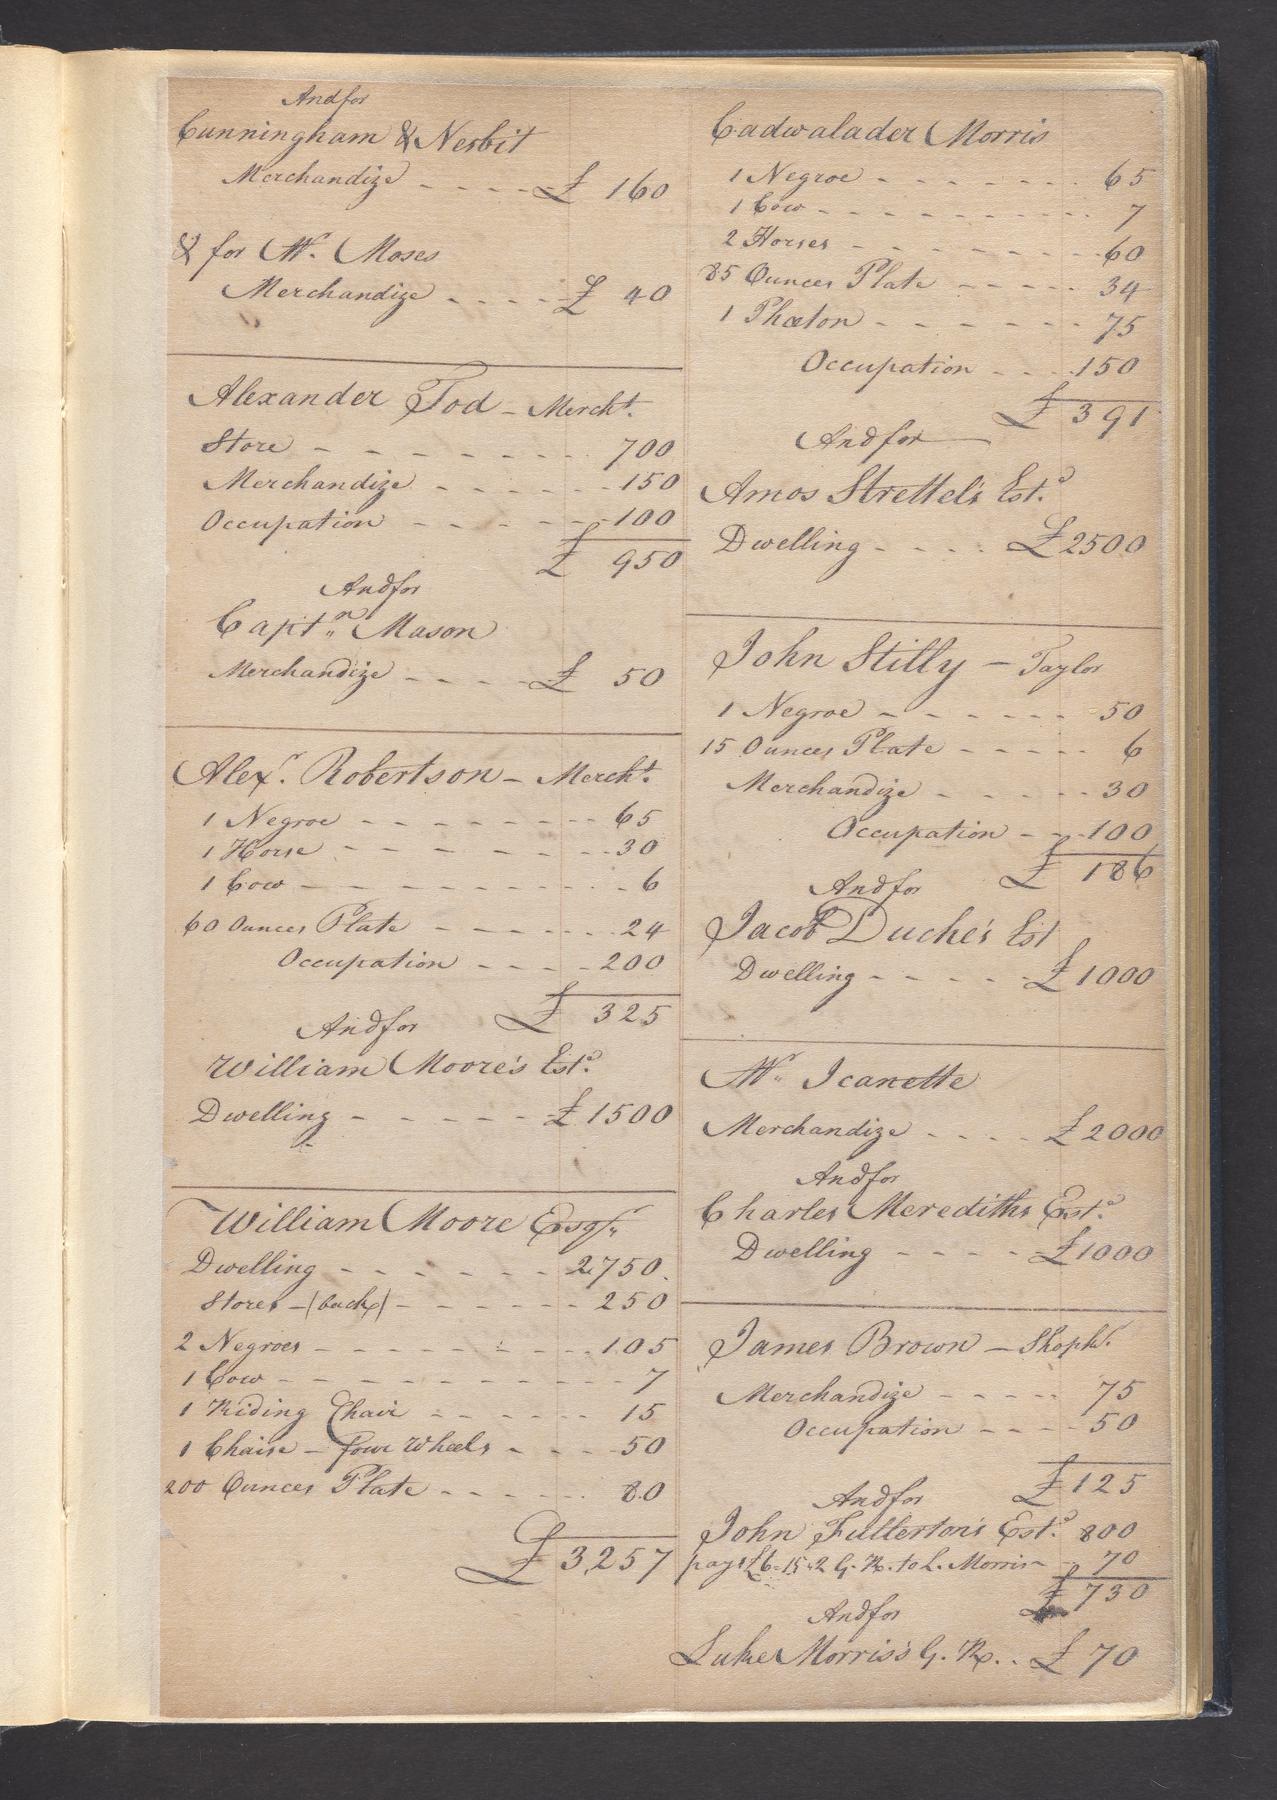 And for
Cunningham & Nesbit
Merchandize - - - - £ 160
& for Mr. Moses
Merchandize - - - - £ 40
Alexander Tod - Mercht.
Store - - - - - - - - 700
Merchandize - - - - - - 150
Occupation - - - - - 100
£ 950
And for
Captn. Mason
Merchandize - - - - £ 50
Alexr. Robertson - Mercht.
1 Negroe - - - - - - - - 65
1 Horse - - - - - - - - 30
1 Cow - - - - - - - - - 6
60 Ounces Plate - - - - - - 24
Occupation - - - - 200
£ 325
And for
William Moore's Esto.
Dwelling - - - - - £ 1500
William Moore Esqr.
Dwelling - - - - - - - 2750.
Stores - (back) - - - - - - 250
2 Negroes - - - - - - - - 105
1 Cow - - - - - - - - - - 7
1 Riding Chair - - - - - - 15
1 Chaise - four Wheels - - - - 50
200 Ounces Plate - - - - - - 80
£ 3,257
Cadwalader Morris
1 Negroe - - - - - - - 65
1 Cow - - - - - - - - - 7
2 Horses - - - - - - - 60
85 Ounces Plate - - - - - 34
1 Phæton - - - - - - - 75
Occupation - - - 150
£ 391
And for
Amos Strettel's Esto.
Dwelling - - - - £ 2500
John Stilly - Taylor
1 Negroe - - - - - - - 50
15 Ounces Plate - - - - - 6
Merchandize - - - - - 30
Occupation - - - 100
£ 186
And for
Jacob Duche's Est
Dwelling - - - - - £ 1000
Mr. Jeanette
Merchandize - - - - £ 2000
And for
Charles Merediths Esto.
Dwelling - - - - £ 1000
James Brown - Shopkr.
Merchandize - - - - - 75
Occupation - - - - 50
£ 125
And for
John Fullerton's Esto. 800
pays £6-15-2 G. R. to L. Morris - - 70
£ 730
And for
Luke Morris's G. R. . . £ 70